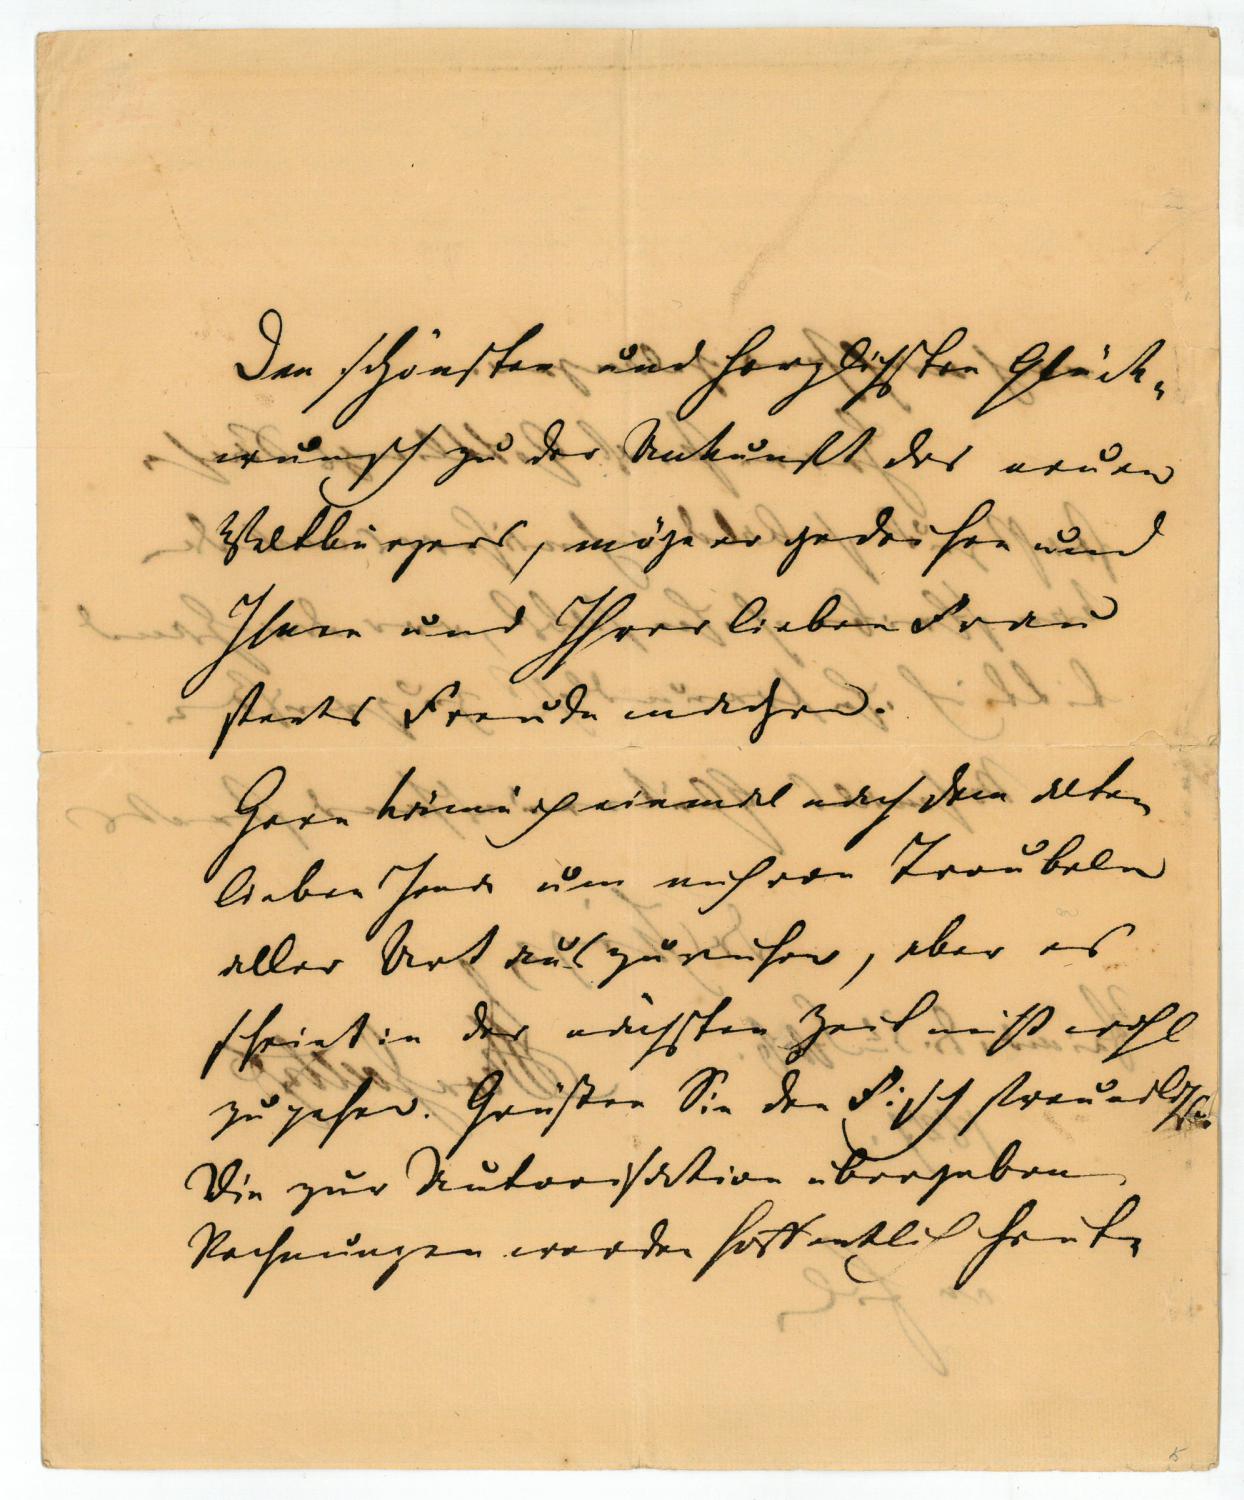 Den schönsten und herzlichsten Glück-
wunsch zu der Ankunft des neuen
Weltbürgers, möge er gedeihen und
Ihnen und Ihrer lieben Frau
stets Freude machen.
Gern käme ich einmal nach dem alten
lieben Jena um mich von Trubeln
aller Art auszuruhen, aber es
scheint in der nächsten Zeit nicht wohl
zu gehen. Grüßen Sie den Fisch freundlichst.
Die zur Autorisation übergebenen
Rechnungen werden hoffentlich heute
5